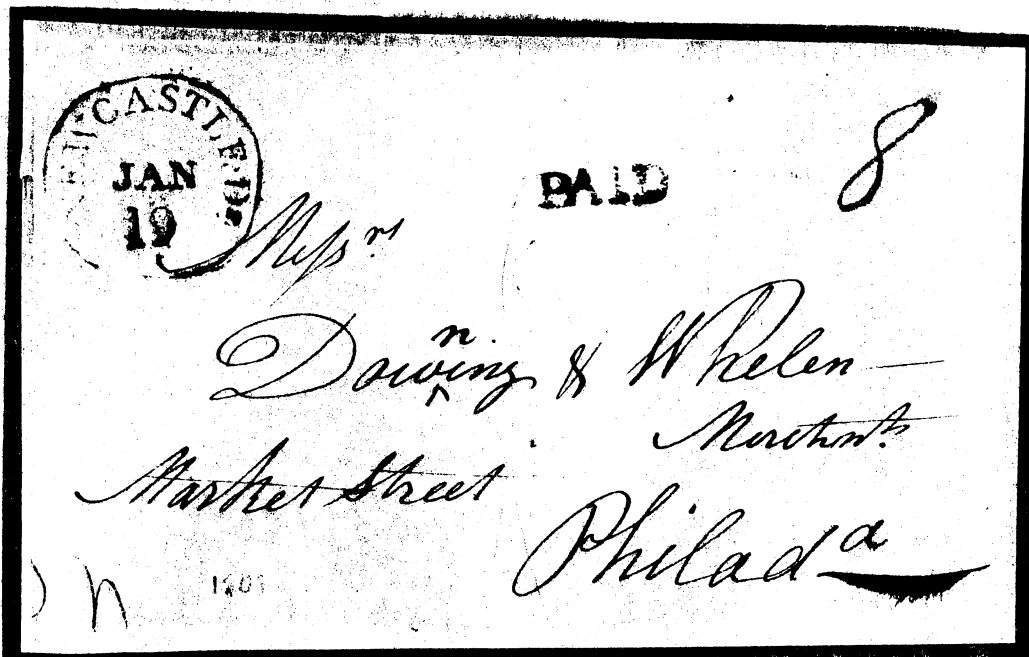 CASTLE·De
JAN
19
PAID
8
Messrs
Downing & Whelen
Merchnts
Market Street
Philada